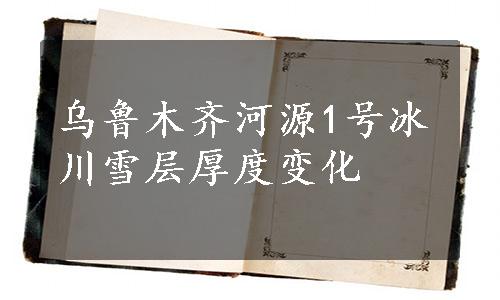 乌鲁木齐河源1号冰
川雪层厚度变化